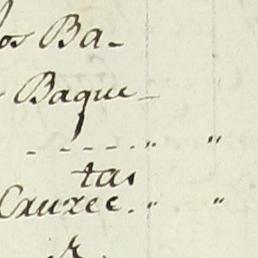 os Ba-
Baque-
- - - - - . „ „
tas
Cruzec. „ „